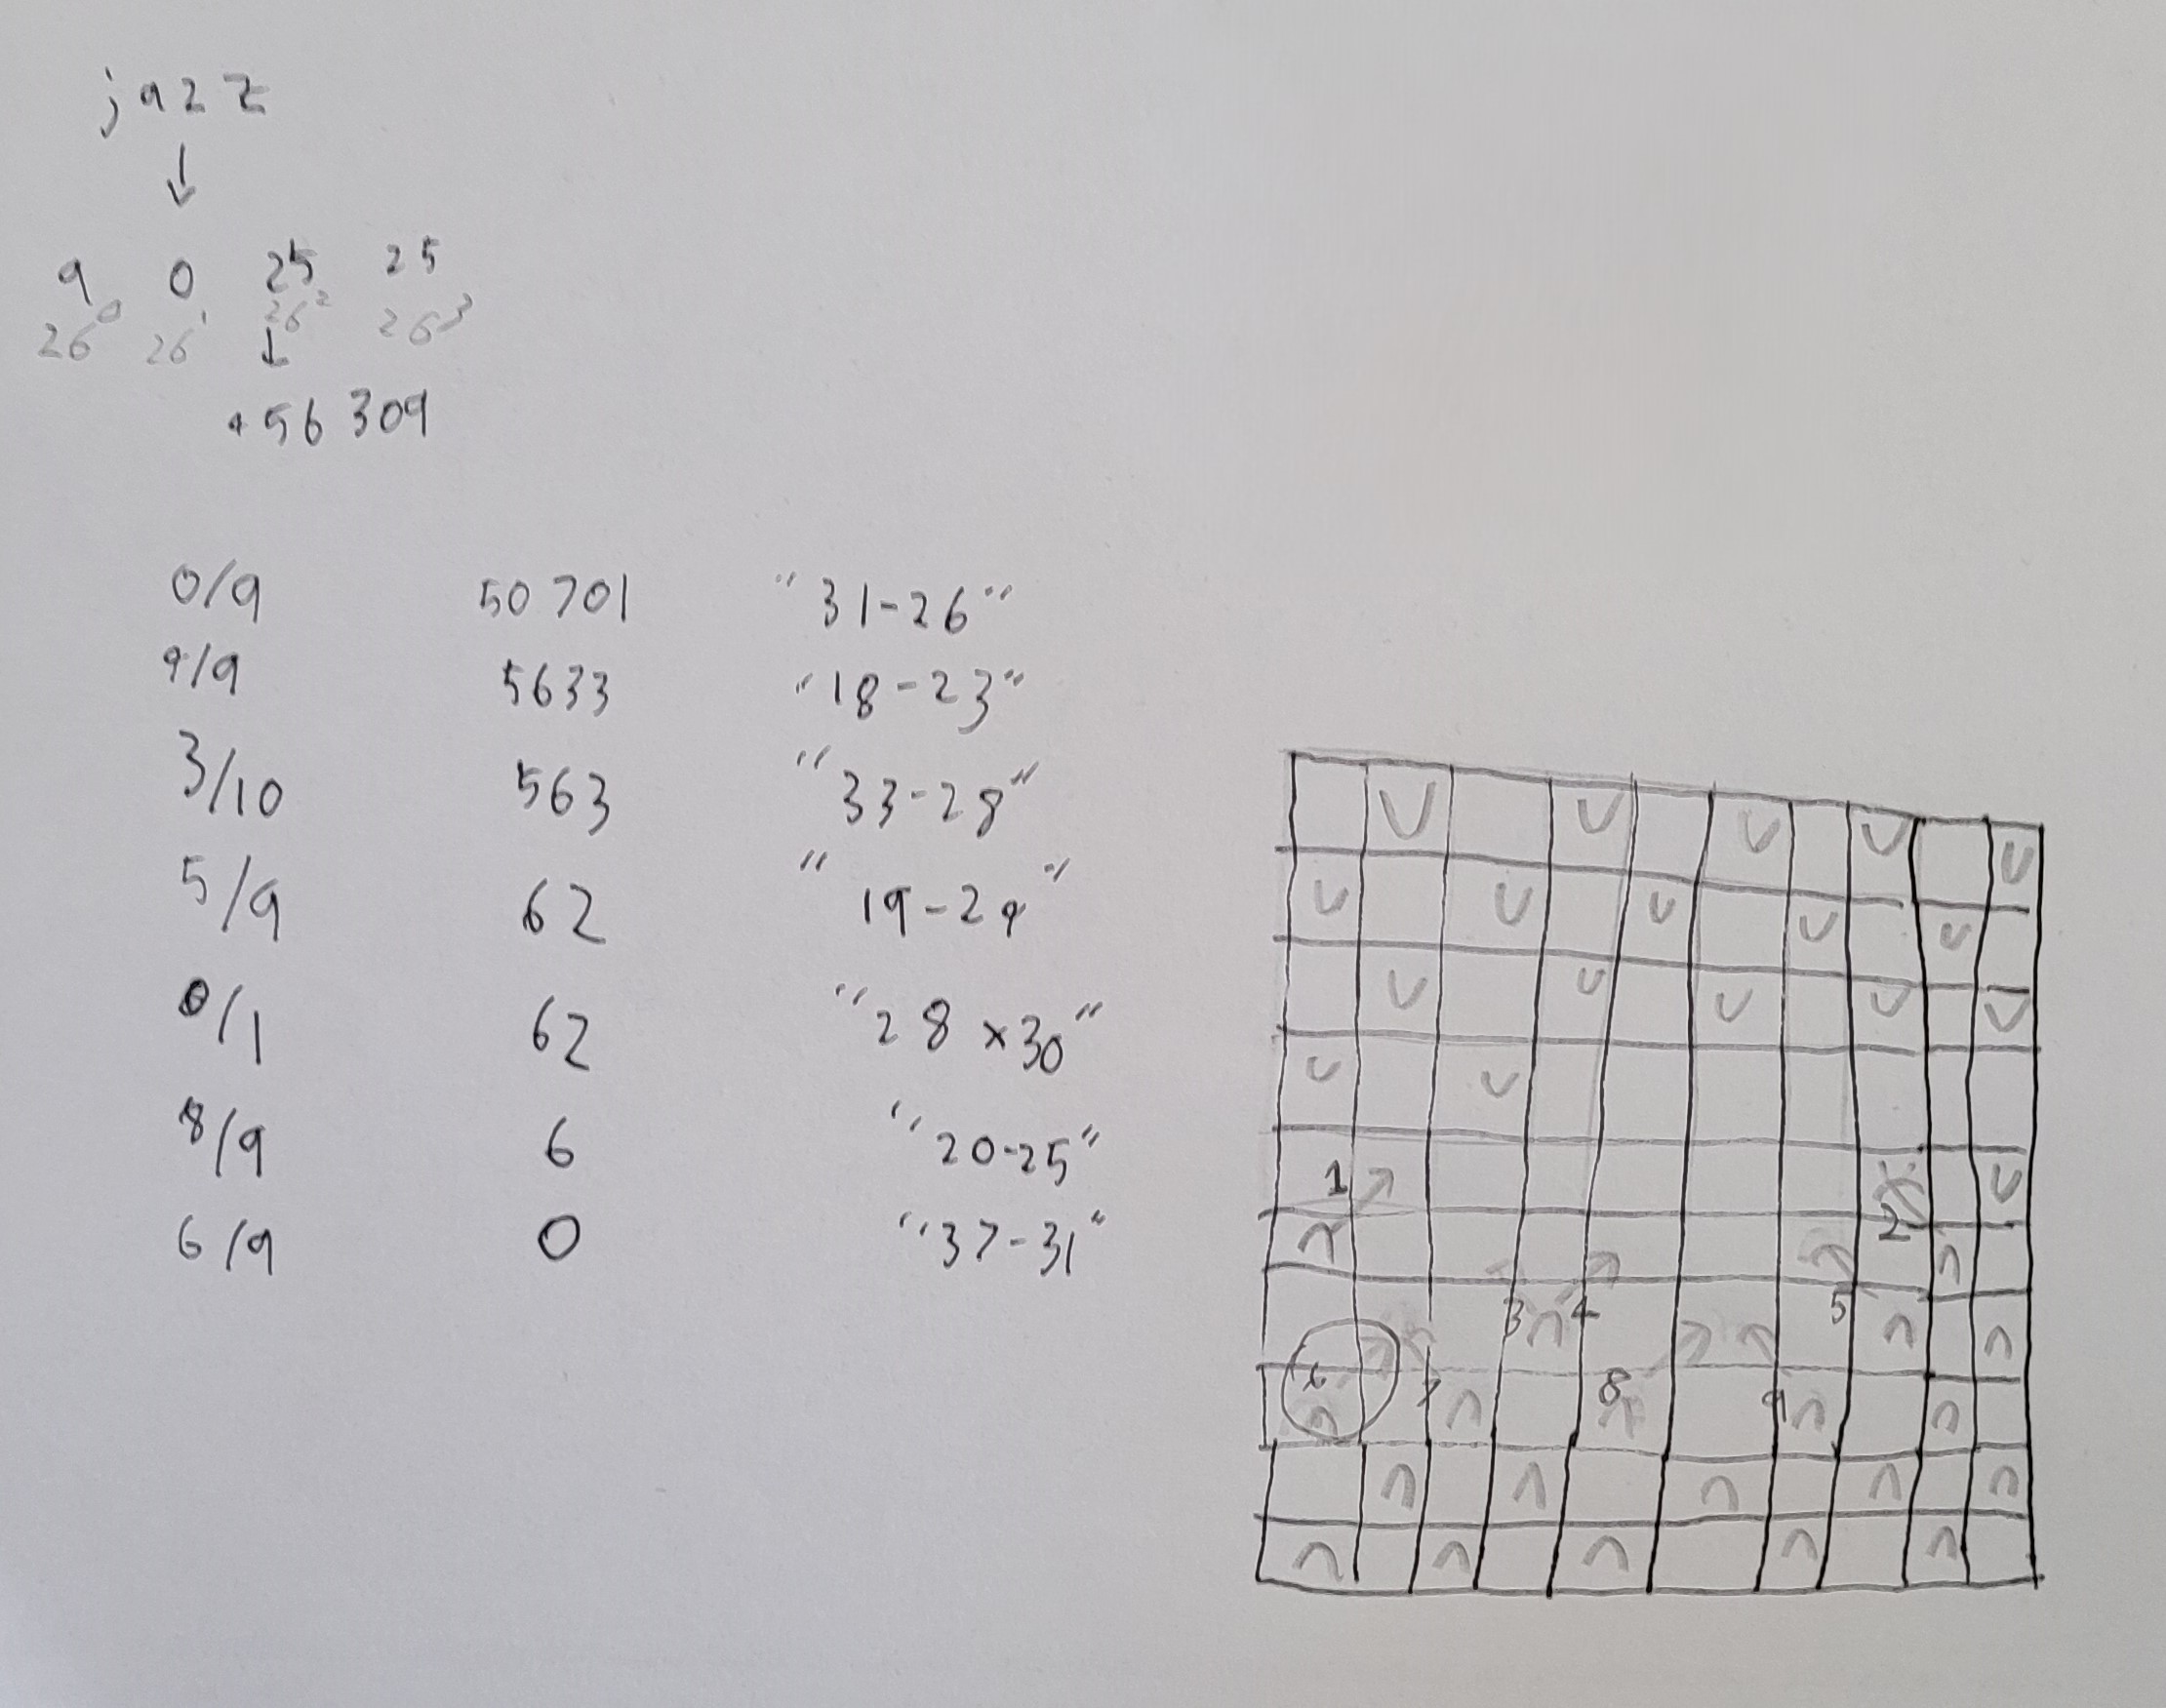 jazz
↓
9 0 25 25
26⁰ 26¹ 26² 26³
↓
456 309
0/9 50 701 "31-26"
4/9 5633 "18-23"
3/10 563 "33-28"
5/9 62 "19-24"
0/1 62 "28×30"
8/9 6 "20-25"
6/9 0 "37-31"
1
2
3 4 5
6 7 8 9